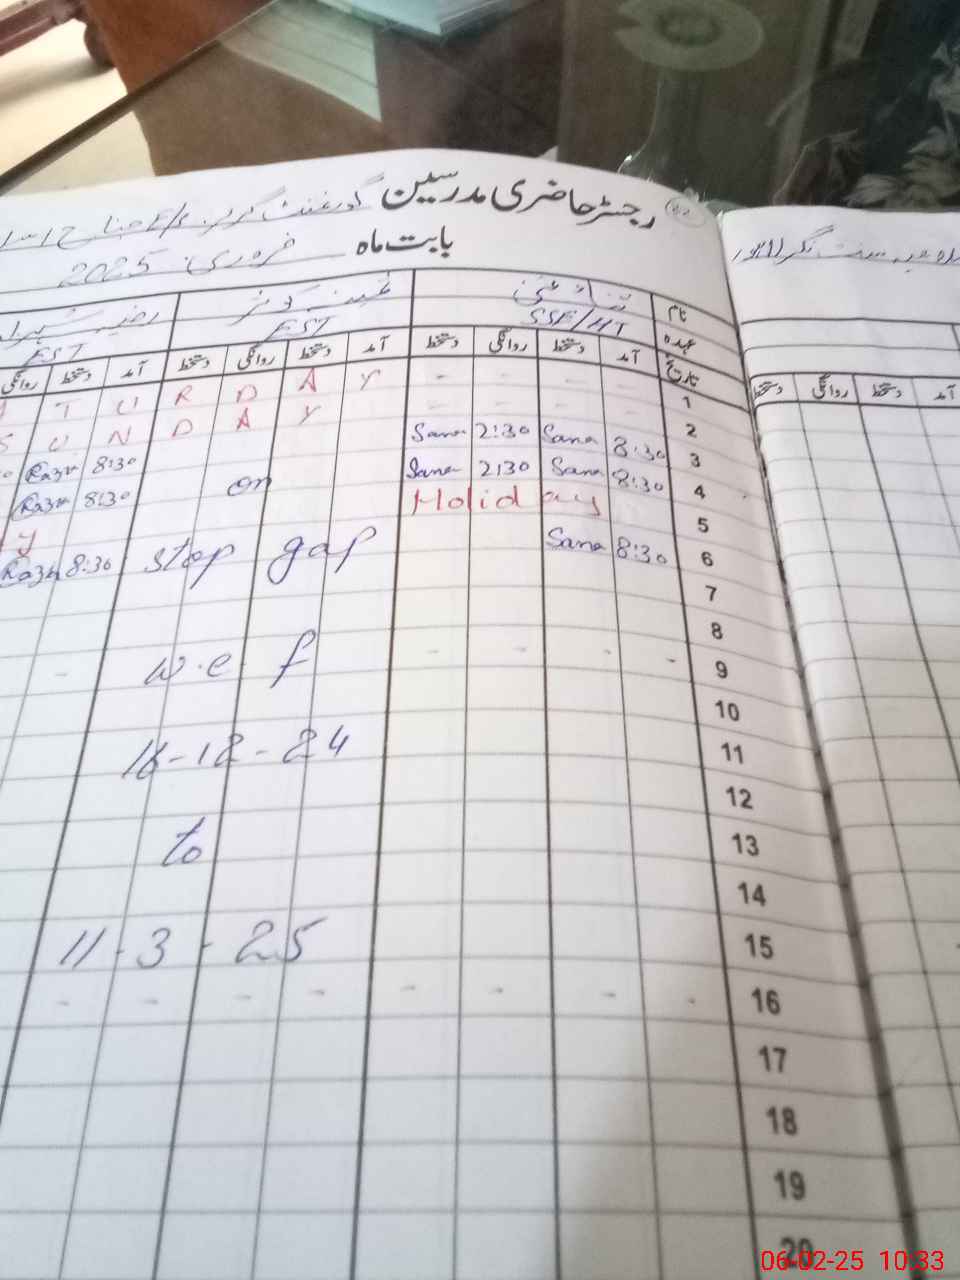 رجسٹر حاضری مدرسین گورنمنٹ گرلز
بابت ماہ فروری 2025
نام
عہدہ SSE/HT EST EST
تاریخ آمد دستخط روانگی دستخط آمد دستخط روانگی دستخط آمد دستخط روانگی
آمد دستخط روانگی دستخط
1 - - - - Y A D R U T
2 - - - - Y A D N U S
3 8:30 Sana 2:30 Sana 8:30 Razia
4 8:30 Sana 2:30 Sana on 8:30 Razia
5 Holiday y
6 8:30 Sana stop gap 8:30 Razia
7
8
9 - - - - w.e.f -
10
11 16-12-24
12
13 to
14
15 11-3-25
16 - - - - - - - -
17
18
19
20
06-02-25 10:33